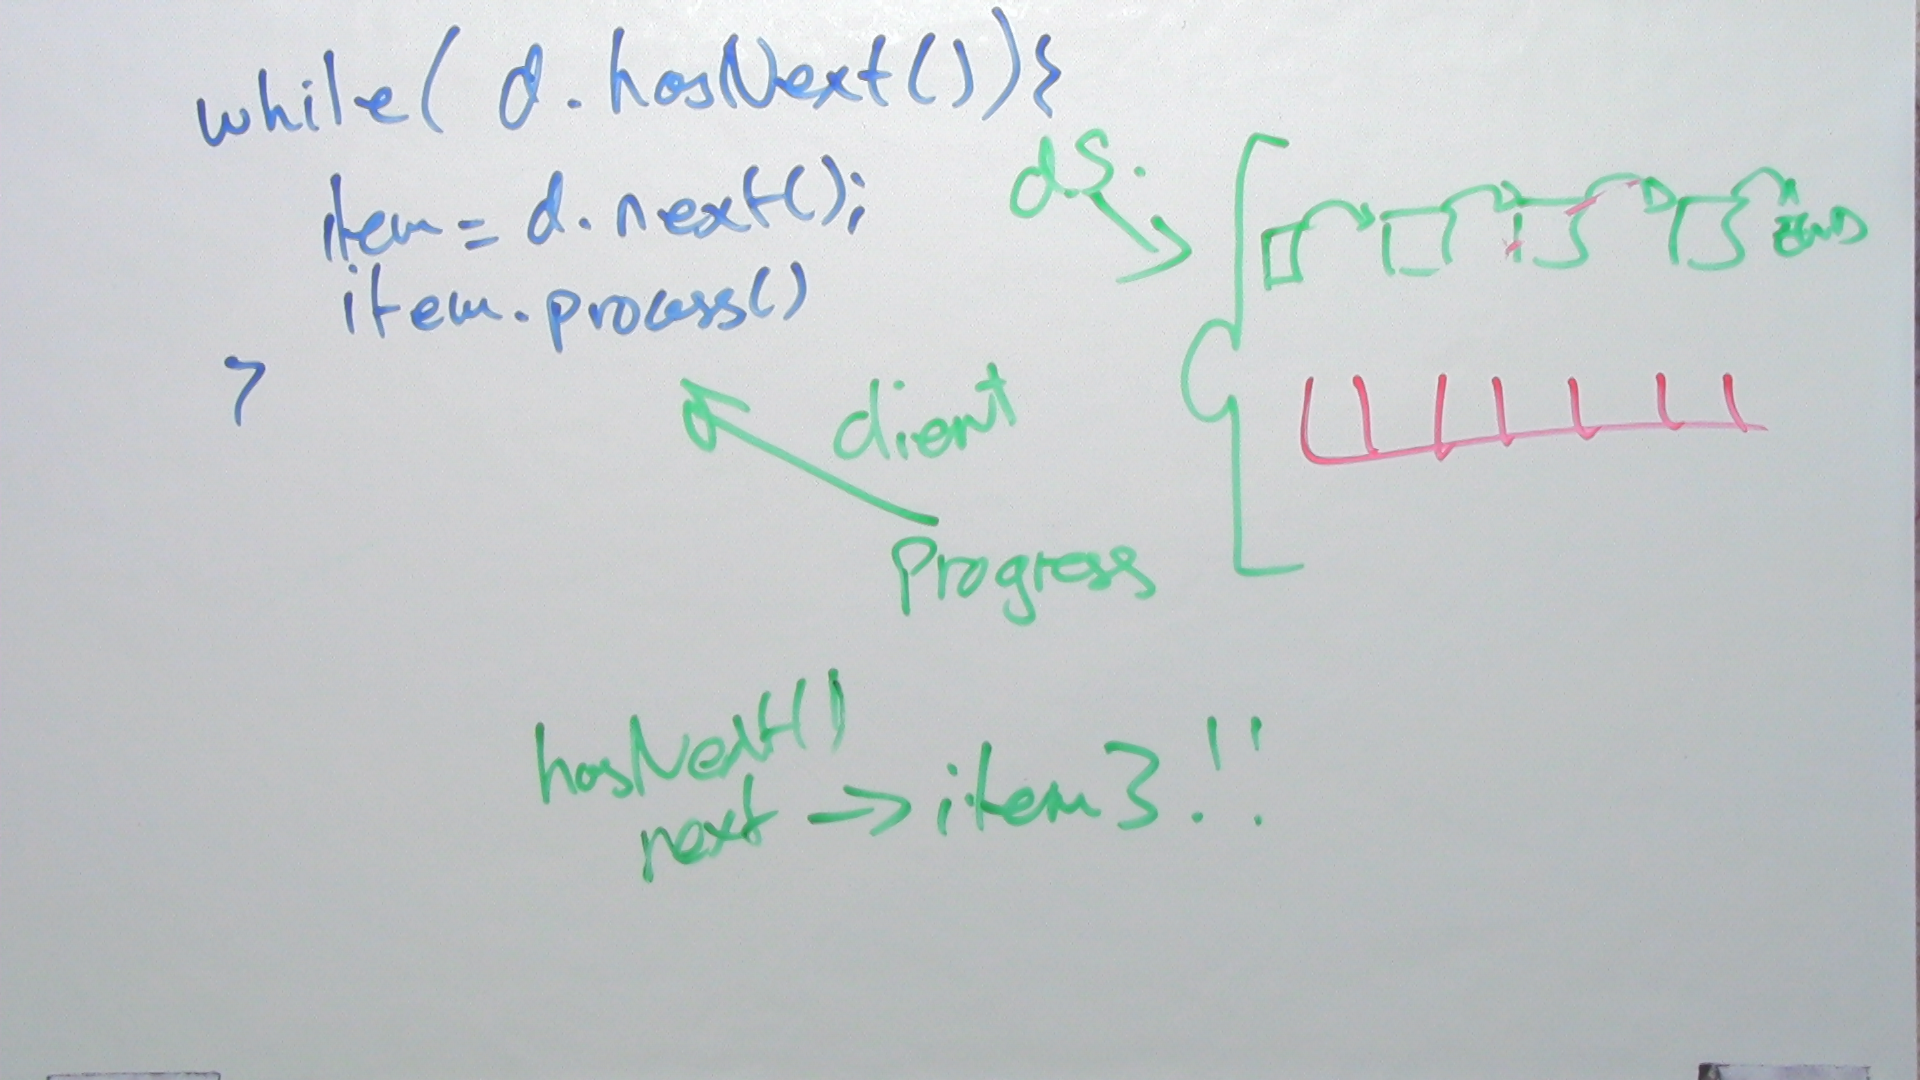 while( d.hasNext()){
item = d.next();
item.process()
}
d.S.
END
client
Progress
hasNext()
next -> item3!!